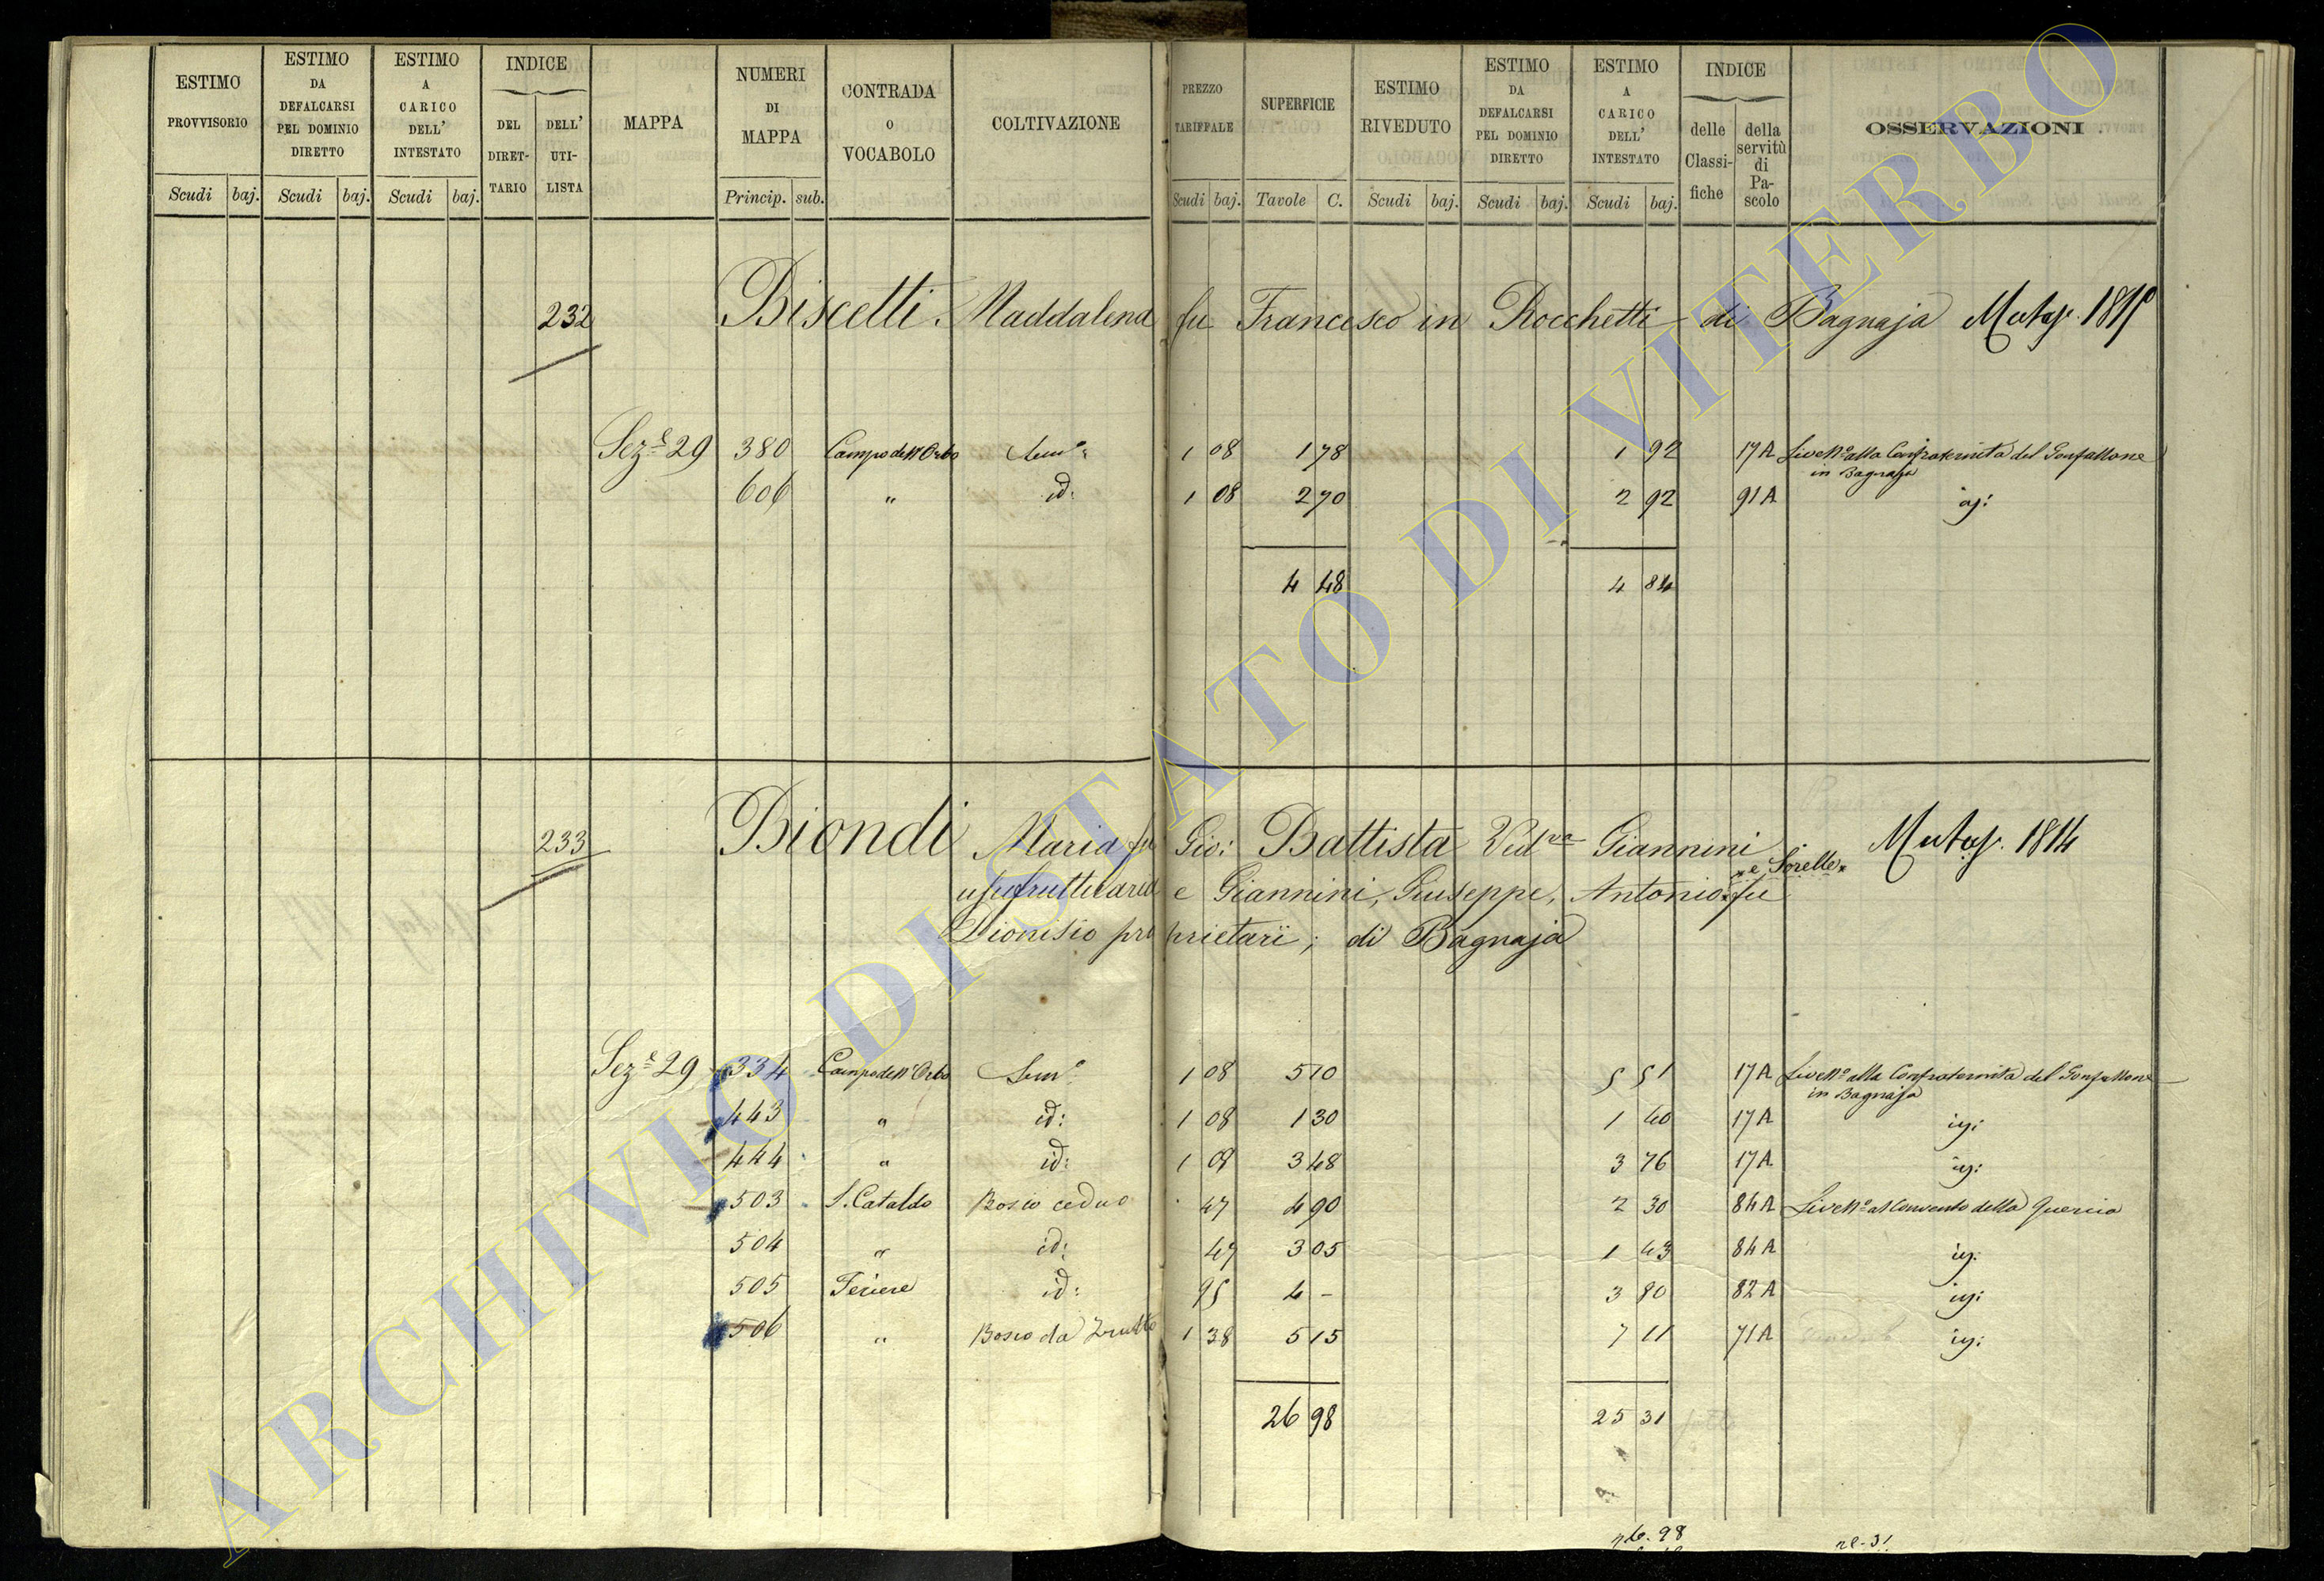 ESTIMO PROVVISORIO
ESTIMO DA DEFALCARSI PEL DOMINIO DIRETTO
ESTIMO A CARICO DELL' INTESTATO
INDICE
DEL DIRET- TARIO
DELL' UTI- LISTA
MAPPA
NUMERI DI MAPPA
CONTRADA O VOCABOLO
COLTIVAZIONE
PREZZO TARIFFALE
SUPERFICIE
ESTIMO RIVEDUTO
ESTIMO DA DEFALCARSI PEL DOMINIO DIRETTO
ESTIMO A CARICO DELL' INTESTATO
INDICE
delle Classi- fiche
della servitù di Pa- scolo
OSSERVAZIONI
Scudi baj. Scudi baj. Scudi baj. Princip. sub. Scudi baj. Tavole C. Scudi baj. Scudi baj. Scudi baj.
232 Biscetti Maddalena fu Francesco in Rocchetti di Bagnaja
Sez.e 29 380 Campo dell'Orbo Sem.o 1 08 1 78 1 92 17A Livell.o alla Confraternita del Gonfallone
in Bagnaja
606 " id: 1 08 2 70 2 92 91A
4 48 4 84
233 Biondi Maria fu Gio: Battista Ved.va Giannini
* e Sorelle *
usufruttuaria e Giannini, Giuseppe, Antonio * fu
Dionisio proprietarii; di Bagnaja
Sez.e 29 334 Campo dell'Orbo Sem.o 1 08 5 10 5 51 17A Livell.o alla Confraternita del Gonfallone
in Bagnaja
443 " id: 1 08 1 30 1 40 17A
444 " id: 1 08 3 48 3 76 17A
503 S. Cataldo Bosco ceduo 47 4 90 2 30 84A Livell.o al Convento della Quercia
504 " id: 47 3 05 1 43 84A
505 id: 95 4 - 3 80 82A
506 " Bosco da frutto 1 38 5 15 7 11 71A
26 98 25 31
ARCHIVIO DI STATO DI VITERBO